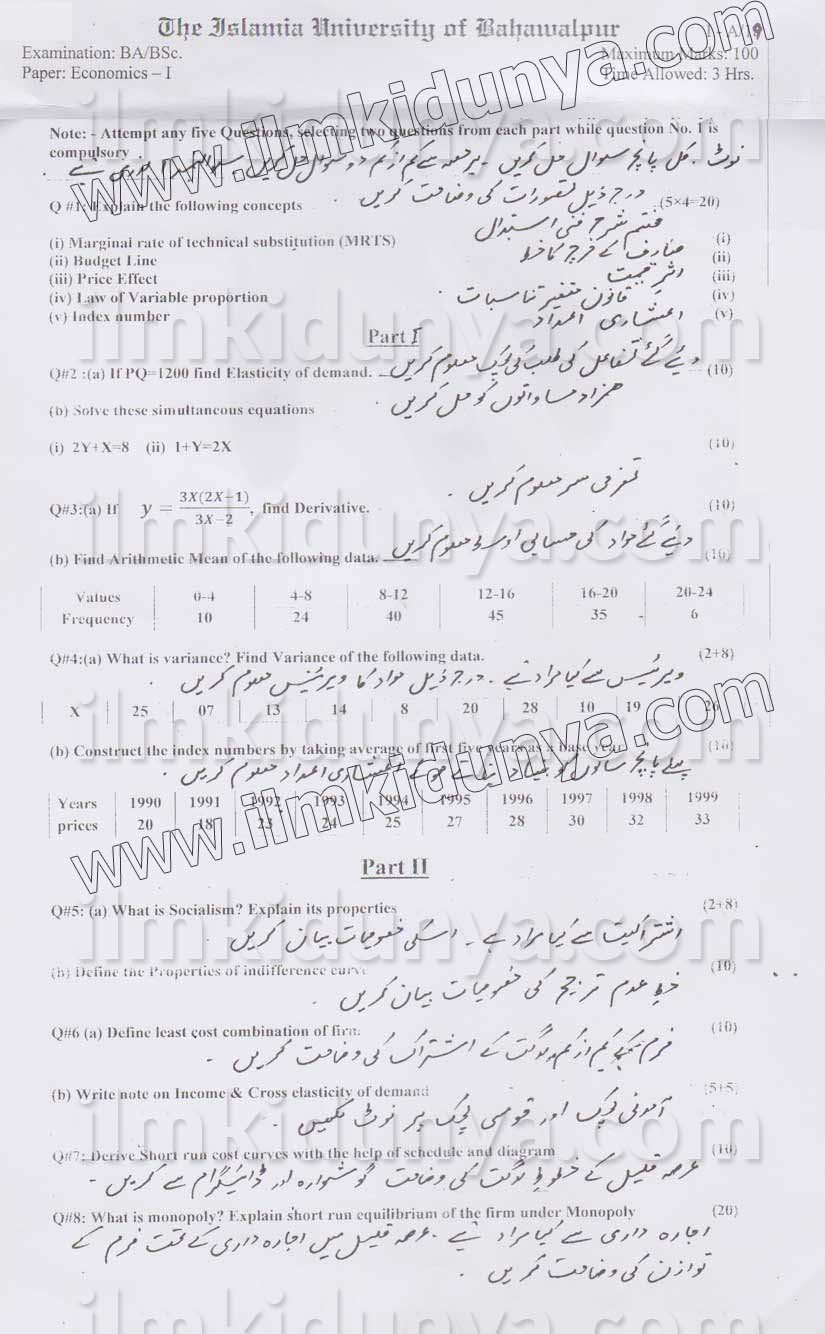 The Islamia University of Bahawalpur
Examination: BA/BSc.
Maximum Marks: 100
Paper: Economics – I
Time Allowed: 3 Hrs.
Note: - Attempt any five Questions, selecting two questions from each part while question No. 1 is
compulsory
نوٹ . کل پانچ سوال حل کریں ۔ ہر حصہ سے کم از کم دو سوال حل کریں
Q #1: Explain the following concepts (5×4=20)
درج ذیل تصورات کی وضاحت کریں
(i) Marginal rate of technical substitution (MRTS) (i)
(ii) Budget Line (ii)
(iii) Price Effect اثر قیمت (iii)
(iv) Law of Variable proportion قانون متغیر تناسبات (iv)
(v) Index number اعشاری اعداد (v)
Part I
Q#2 :(a) If PQ=1200 find Elasticity of demand. دیئے گئے تفاعل کی طلب کی لچک معلوم کریں (10)
(b) Solve these simultaneous equations ہمزاد مساواتوں کو حل کریں
(i) 2Y+X=8 (ii) 1+Y=2X (10)
تفرقی سر معلوم کریں .
Q#3:(a) If y = 3X(2X−1) / 3X−2, find Derivative. (10)
(b) Find Arithmetic Mean of the following data. دیئے گئے مواد کی حسابی اوسط معلوم کریں (10)
Values 0-4 4-8 8-12 12-16 16-20 20-24
Frequency 10 24 40 45 35 6
Q#4:(a) What is variance? Find Variance of the following data. (2+8)
ویرینس سے کیا مراد ہے . درج ذیل مواد کا ویرینس معلوم کریں
X 25 07 13 14 8 20 28 10 19 26
(b) Construct the index numbers by taking average of first five years as a base year (10)
پہلے پانچ سالوں کو بنیاد اعداد معلوم کریں .
Years 1990 1991 1992 1993 1994 1995 1996 1997 1998 1999
prices 20 18 23 24 25 27 28 30 32 33
Part II
Q#5: (a) What is Socialism? Explain its properties (2+8)
اشتراکیت سے کیا مراد ہے ۔ اسکی خصوصیات بیان کریں .
(b) Define the Properties of indifference curve (10)
خط عدم ترجیح کی خصوصیات بیان کریں .
Q#6 (a) Define least cost combination of firm. (10)
فرم کم از کم لاگت کے اشتراک کی وضاحت کریں .
(b) Write note on Income & Cross elasticity of demand (5+5)
آمدنی لچک اور قوسی لچک پر نوٹ لکھیں .
Q#7: Derive Short run cost curves with the help of schedule and diagram (10)
عرصہ قلیل کے خطوط لاگت کی وضاحت گوشوارہ اور ڈائیگرام سے کریں ۔
Q#8: What is monopoly? Explain short run equilibrium of the firm under Monopoly (20)
اجارہ داری سے کیا مراد ہے . عرصہ قلیل میں اجارہ داری کے تحت فرم کے
توازن کی وضاحت کریں .
www.ilmkidunya.com
www.ilmkidunya.com
ilmkidunya.com
ilmkidunya.com
ilmkidunya.com
ilmkidunya.com
ilmkidunya.com
ilmkidunya.com
ilmkidunya.com